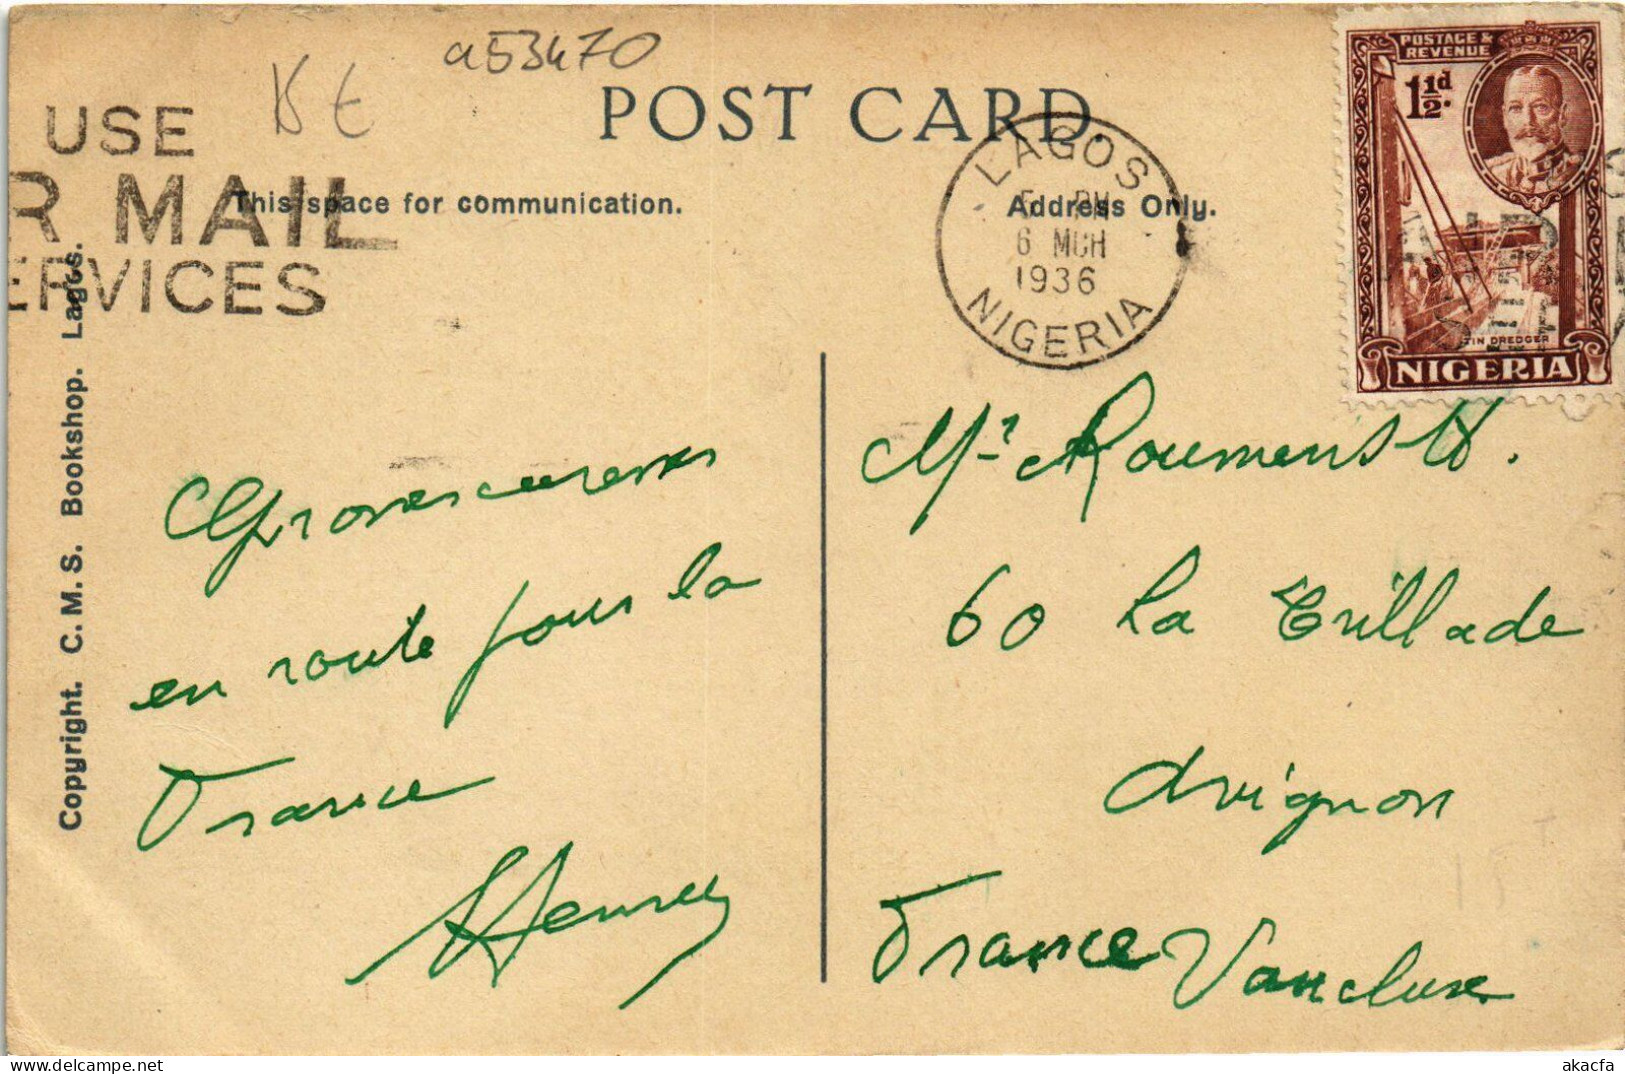 a53470
USE
R MAIL
ERVICES
POST CARD.
This space for communication.
Address Only.
LAGOS
5 PM
6 MCH
1936
NIGERIA
POSTAGE &
REVENUE
1½d.
TIN DREDGER
NIGERIA
Copyright. C. M. S. Bookshop. Lagos.
en route pour la
France
Mr Roumens
60 La Trillade
Avignon
France Vaucluse
akacfa